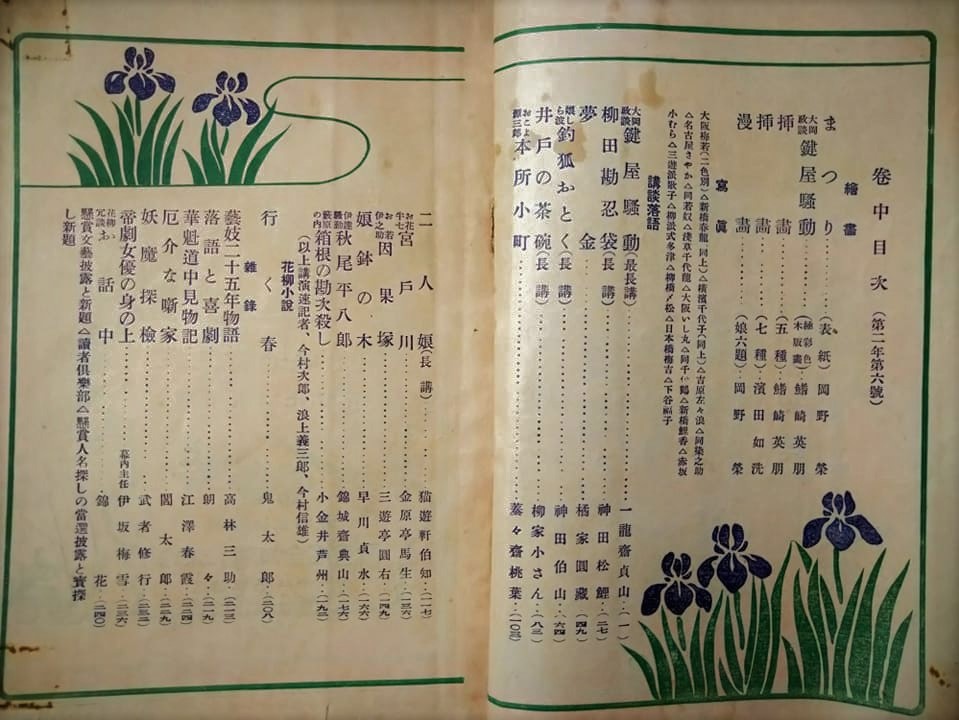 卷中目次（第二年第六號）
繪畫
まつり（表紙）岡野榮
大岡政談鍵屋騷動（極彩色木版畫）鰭崎英朋
挿畵（五種）鰭崎英朋
挿畵（七種）濱田如洗
漫畵（娘六題）岡野榮
寫眞
大阪梅若（二色別）△新橋春龍（同上）△横濱千代子（同上）△吉原左々浪△同染之助
△名古屋さやか△同若奴△淺草千代龍△大阪いし丸△同千代鶴△新橋鯉香△赤坂
小むら△三遊派歌子△柳派式多津△柳橋〆松△日本橋梅吉△下谷福子
講談落語
大岡政談鍵屋騷動（最長講）一龍齋貞山（一）
柳田勘忍袋（長講）神田松鯉（二七）
夢金橘家圓藏（四九）
嬲しら波釣狐おとく（長講）神田伯山（六四）
井戸の茶碗（長講）柳家小さん（八三）
おこよ源三郎本所小町蓁々齋桃葉（一〇三）
二人娘（長講）猫遊軒伯知（一一七）
お花半七宮戸川金原亭馬生（一三六）
お若伊之助因果塚三遊亭圓右（一四九）
娘鉢の木早川貞水（一六六）
伊達騷動秋尾平八郎錦城齋典山（一七六）
籔原の内箱根の勘次殺し小金井芦州（一九二）
（以上講演速記者、今村次郎、浪上義三郎、今村信雄）
花柳小説
行く春鬼太郎（二〇八）
雜錄
藝妓二十五年物語高林三助（二一三）
落語と喜劇朗々（二一九）
華魁道中見物記江澤春霞（二二四）
厄介な噺家閻太郎（二二九）
妖魔探檢武者修行（二三二）
帝劇女優の身の上幕内主任伊坂梅雪（二三六）
花柳冗談お話中錦花（二四〇）
懸賞文藝披露と新題△讀者倶樂部△懸賞人名探しの當選披露と寶探
し新題